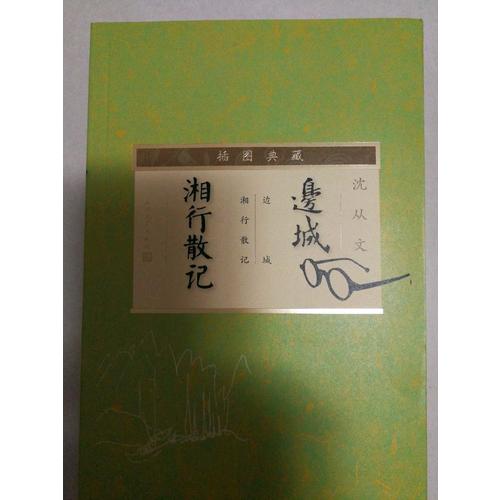 插图典藏
沈从文
邊城
边城
湘行散记
湘行散记